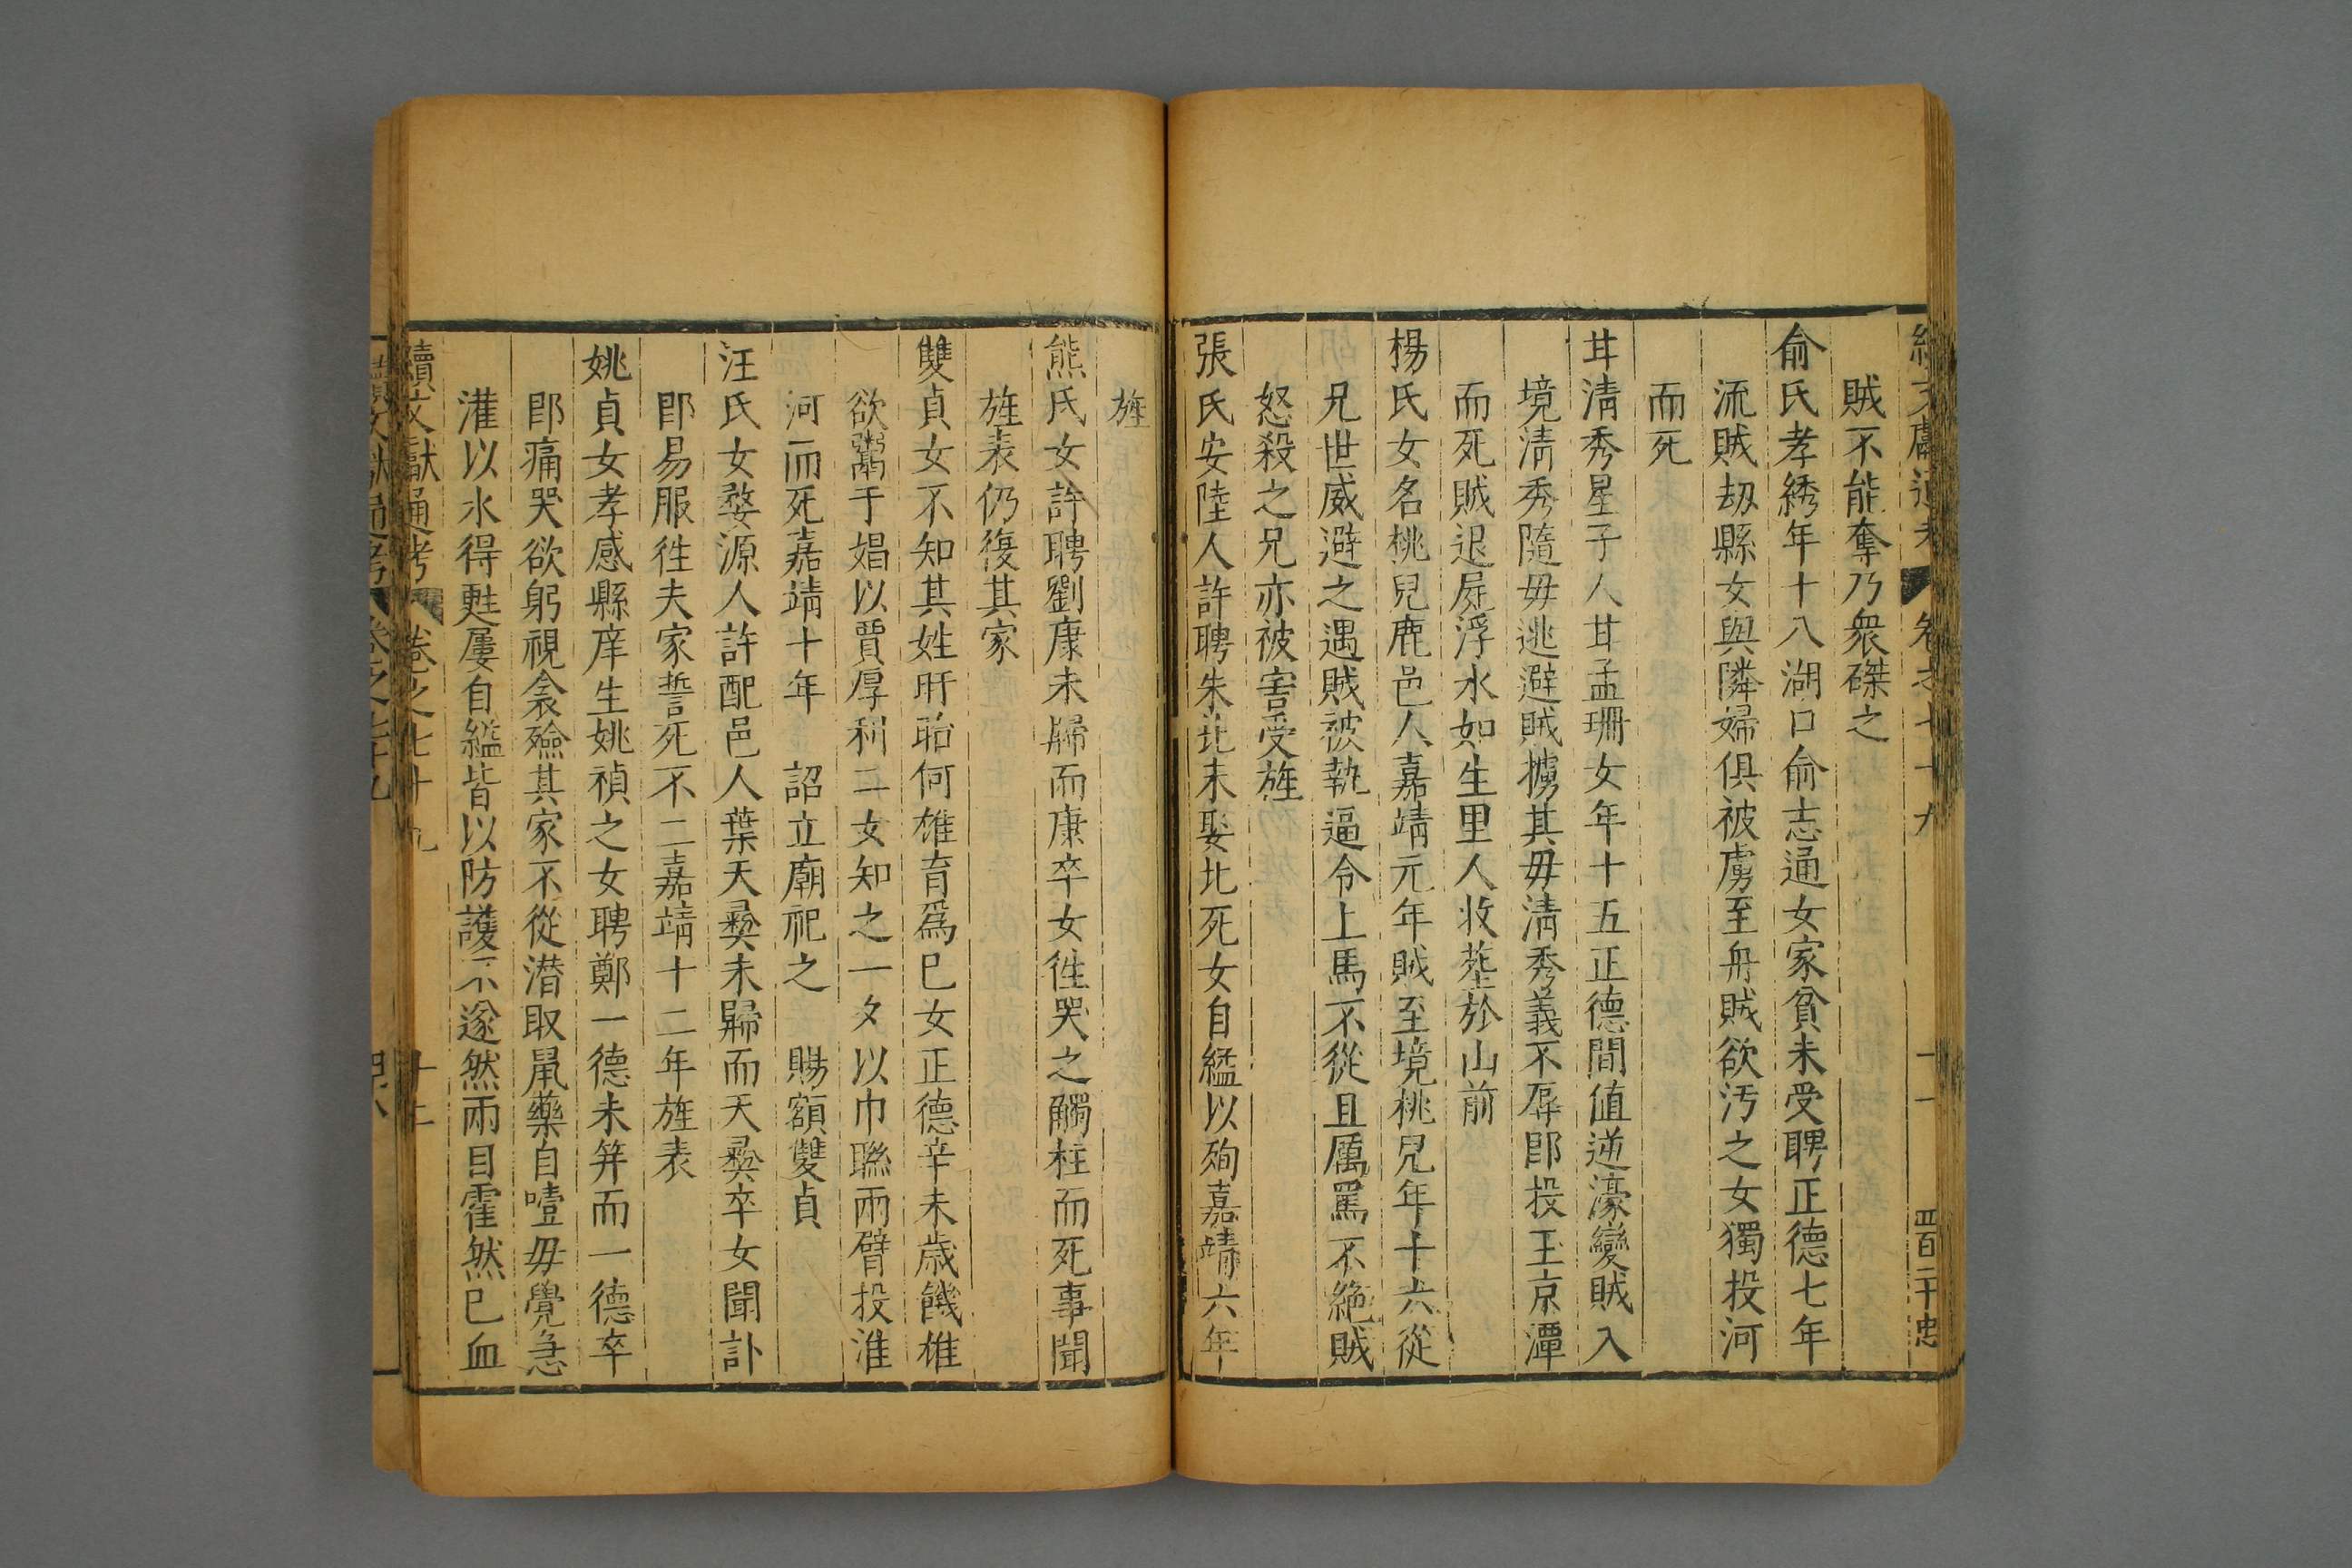 續文獻通考 卷之七十九 十一 四百二十 忠
賊不能奪乃衆磔之
俞氏孝綉年十八湖口俞志通女家貧未受聘正德七年
流賊刼縣女與隣婦俱被虜至舟賊欲汚之女獨投河
而死
甘淸秀星子人甘孟珊女年十五正德間值逆濠變賊入
境淸秀隨母逃避賊擄其母淸秀義不辱卽投玉京潭
而死賊退屍浮水如生里人收塟於山前
楊氏女名桃兒鹿邑人嘉靖元年賊至境桃兒年十六從
兄世威避之遇賊被執逼令上馬不從且厲罵不絶賊
怒殺之兄亦被害受旌
張氏安陸人許聘朱玭未娶玭死女自縊以殉嘉靖六年
旌
熊氏女許聘劉康未歸而康卒女徃哭之觸柱而死事聞
旌表仍復其家
雙貞女不知其姓盱眙何雄育爲巳女正德辛未歲饑雄
欲鬻于娼以賈厚利二女知之一夕以巾聮兩臂投淮
河而死嘉靖十年 詔立廟祀之 賜額雙貞
汪氏女婺源人許配邑人葉天彞未歸而天彞卒女聞訃
卽易服徃夫家誓死不二嘉靖十二年旌表
姚貞女孝感縣庠生姚禎之女聘鄭一德未笄而一德卒
卽痛哭欲躬視衾殮其家不從潜取鼠藥自噎母覺急
灌以水得甦屢自縊皆以防護不遂然兩目霍然巳血
續文獻通考 卷之七十九 十二